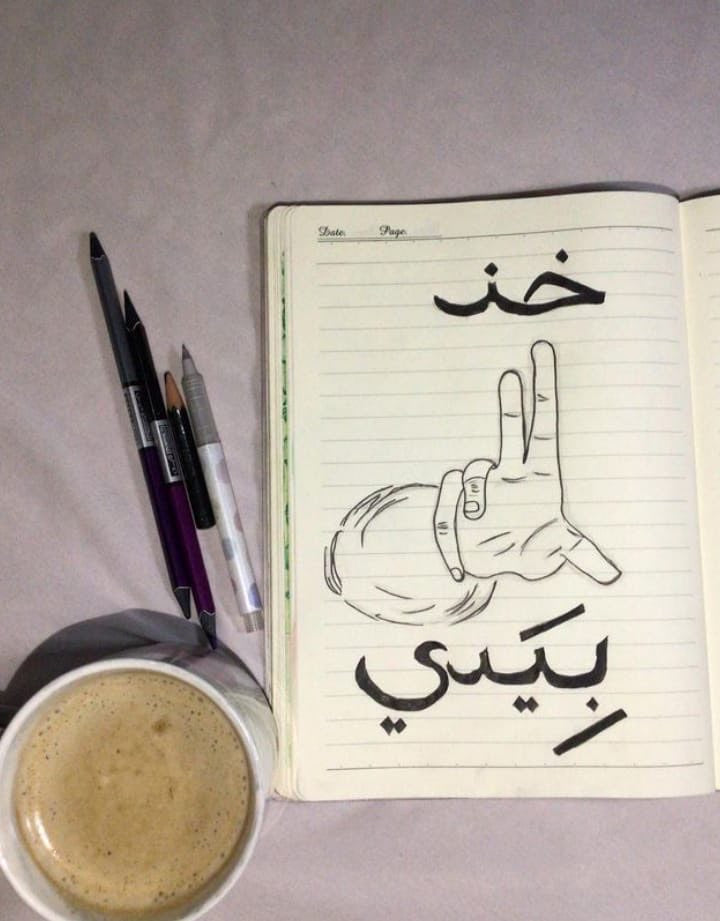 Date: Page:
خذ
بِيَدي